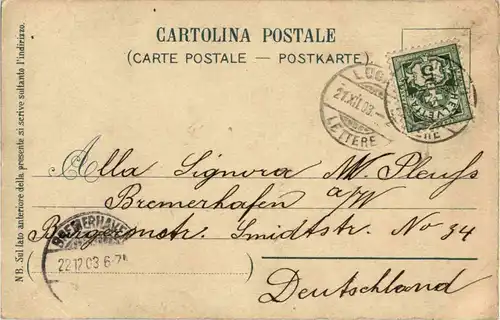 CARTOLINA POSTALE
(CARTE POSTALE — POSTKARTE)
N B. Sul lato anteriore della presente si scrive soltanto l'indirizzo.
LUG
21.XII.03.–
LETTERE
HELVETIA
5
Alla Signora M. Pleuss
Bremerhafen
a/W
Bürgermstr. Smidtstr. No 34
Deutschland
BREMERHAVE
22.12.03 6-7